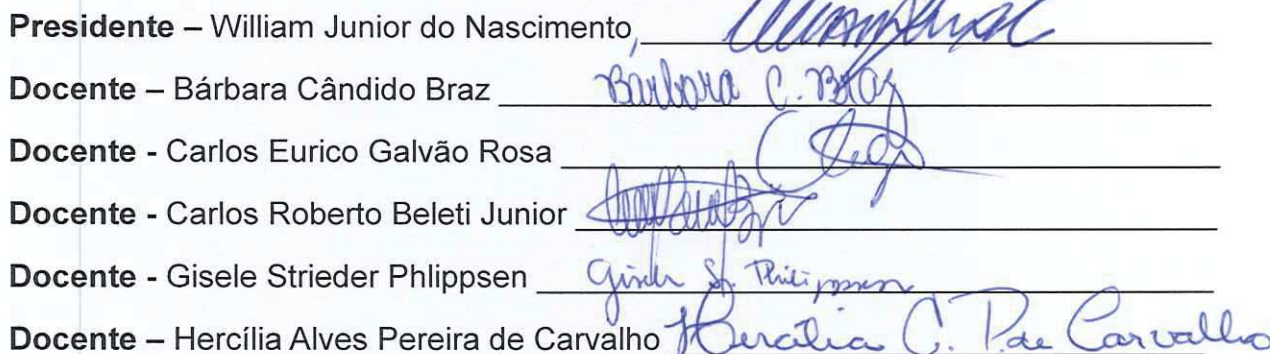 Presidente – William Junior do Nascimento,
Docente – Bárbara Cândido Braz Bárbara C. Braz
Docente - Carlos Eurico Galvão Rosa
Docente - Carlos Roberto Beleti Junior
Docente - Gisele Strieder Phlippsen Gisele S. Philippsen
Docente – Hercília Alves Pereira de Carvalho Hercília C. P. de Carvalho